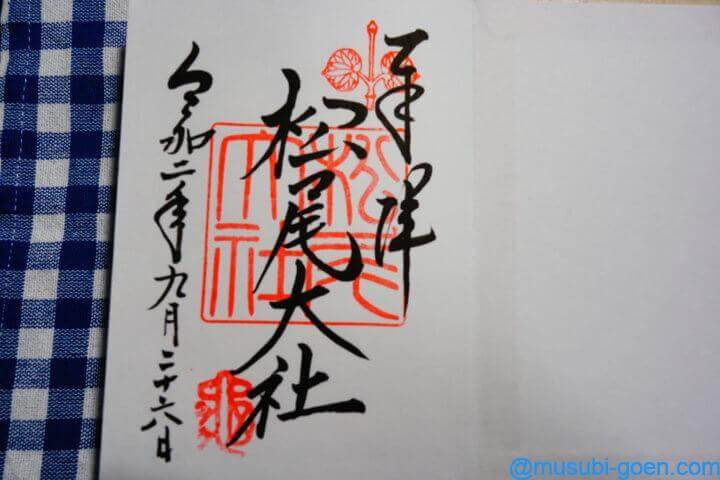 奉拝
松尾大社
令和二年九月二十六日
松尾大社
@musubi-goen.com